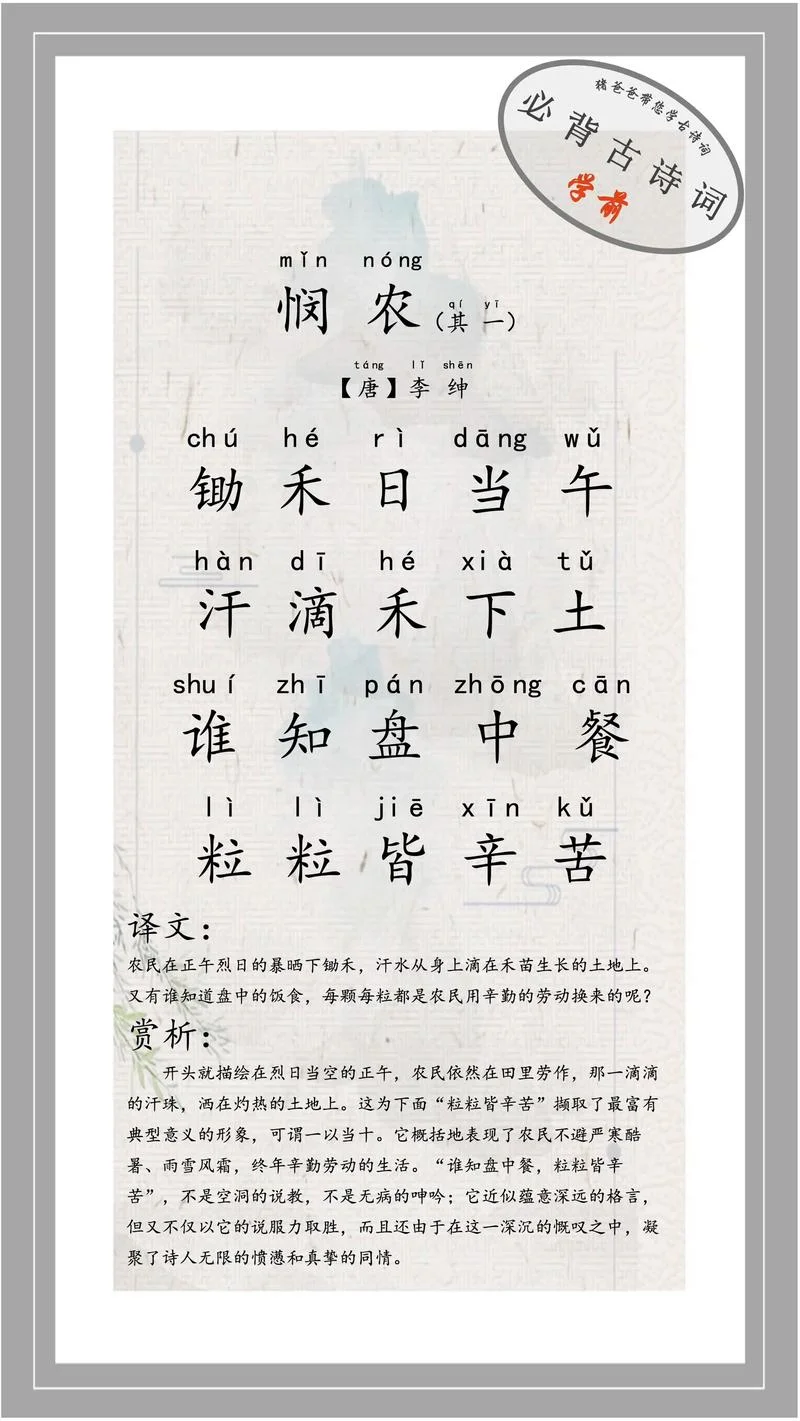 桡爸爸带您学古诗词
必背古诗词
学前
mǐn nóng
悯农(其一)
qí yī
táng lǐ shēn
【唐】李绅
chú hé rì dāng wǔ
锄禾日当午
hàn dī hé xià tǔ
汗滴禾下土
shuí zhī pán zhōng cān
谁知盘中餐
lì lì jiē xīn kǔ
粒粒皆辛苦
译文：
农民在正午烈日的暴晒下锄禾，汗水从身上滴在禾苗生长的土地上。
又有谁知道盘中的饭食，每颗每粒都是农民用辛勤的劳动换来的呢？
赏析：
开头就描绘在烈日当空的正午，农民依然在田里劳作，那一滴滴
的汗珠，洒在灼热的土地上。这为下面“粒粒皆辛苦”撷取了最富有
典型意义的形象，可谓一以当十。它概括地表现了农民不避严寒酷
暑、雨雪风霜，终年辛勤劳动的生活。“谁知盘中餐，粒粒皆辛
苦”，不是空洞的说教，不是无病的呻吟；它近似蕴意深远的格言，
但又不仅以它的说服力取胜，而且还由于在这一深沉的慨叹之中，凝
聚了诗人无限的愤懑和真挚的同情。